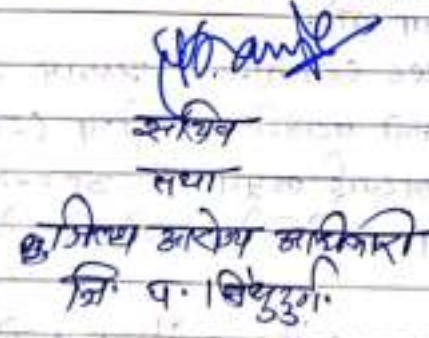 सचिव
तथा
जिल्हा आरोग्य अधिकारी
जि. प. सिंधुदुर्ग.